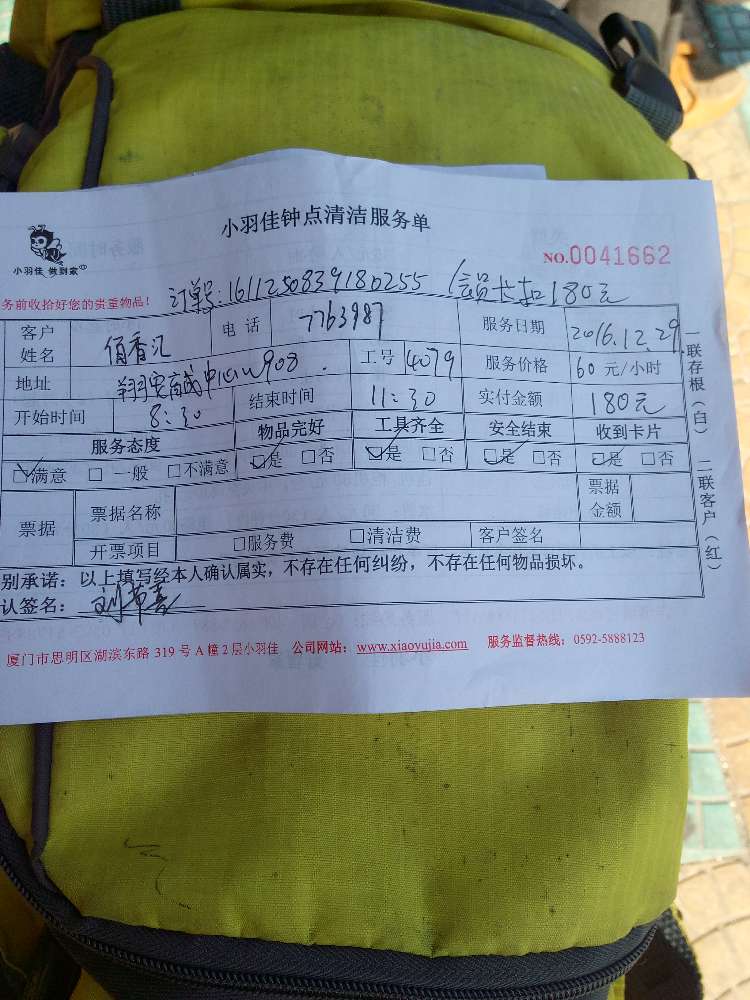 小羽佳钟点清洁服务单
小羽佳 做到家
NO.0041662
务前收拾好您的贵重物品！
订单号:161125083918 0255 会员卡扣180元
客户姓名 佰香汇 电话 7763987 服务日期 2016.12.29.
地址 908 工号 4079 服务价格 60元/小时
开始时间 8:30 结束时间 11:30 实付金额 180元
服务态度 物品完好 工具齐全 安全结束 收到卡片
☑满意 □一般 □不满意 ☑是 □否 ☑是 □否 ☑是 □否 ☑是 □否
票据 票据名称 票据金额
开票项目 □服务费 □清洁费 客户签名
别承诺：以上填写经本人确认属实，不存在任何纠纷，不存在任何物品损坏。
认签名：
厦门市思明区湖滨东路 319 号 A 幢 2 层小羽佳 公司网站：www.xiaoyujia.com 服务监督热线：0592-5888123
一联存根（白） 二联客户（红）